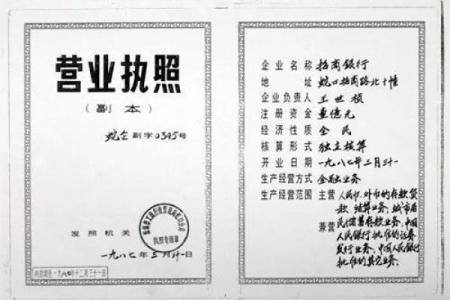 营业执照
（副本）
蛇企 副字 0345号
发照机关
一九八七年三月卅一日
企业名称 招商银行
地址 蛇口招商路北十幢
企业负责人 王世桢
注册资金 壹亿元
经济性质 全民
核算形式 独立核算
开业日期 一九八七年三月卅一
生产经营方式 金融业务
生产经营范围 主营 人民币、外币的存款放
款、结算业务、城市居
兼营 民储蓄存款业务、中国
人民银行批准的证券
发行业务、中国人民银行
批准的其它业务。